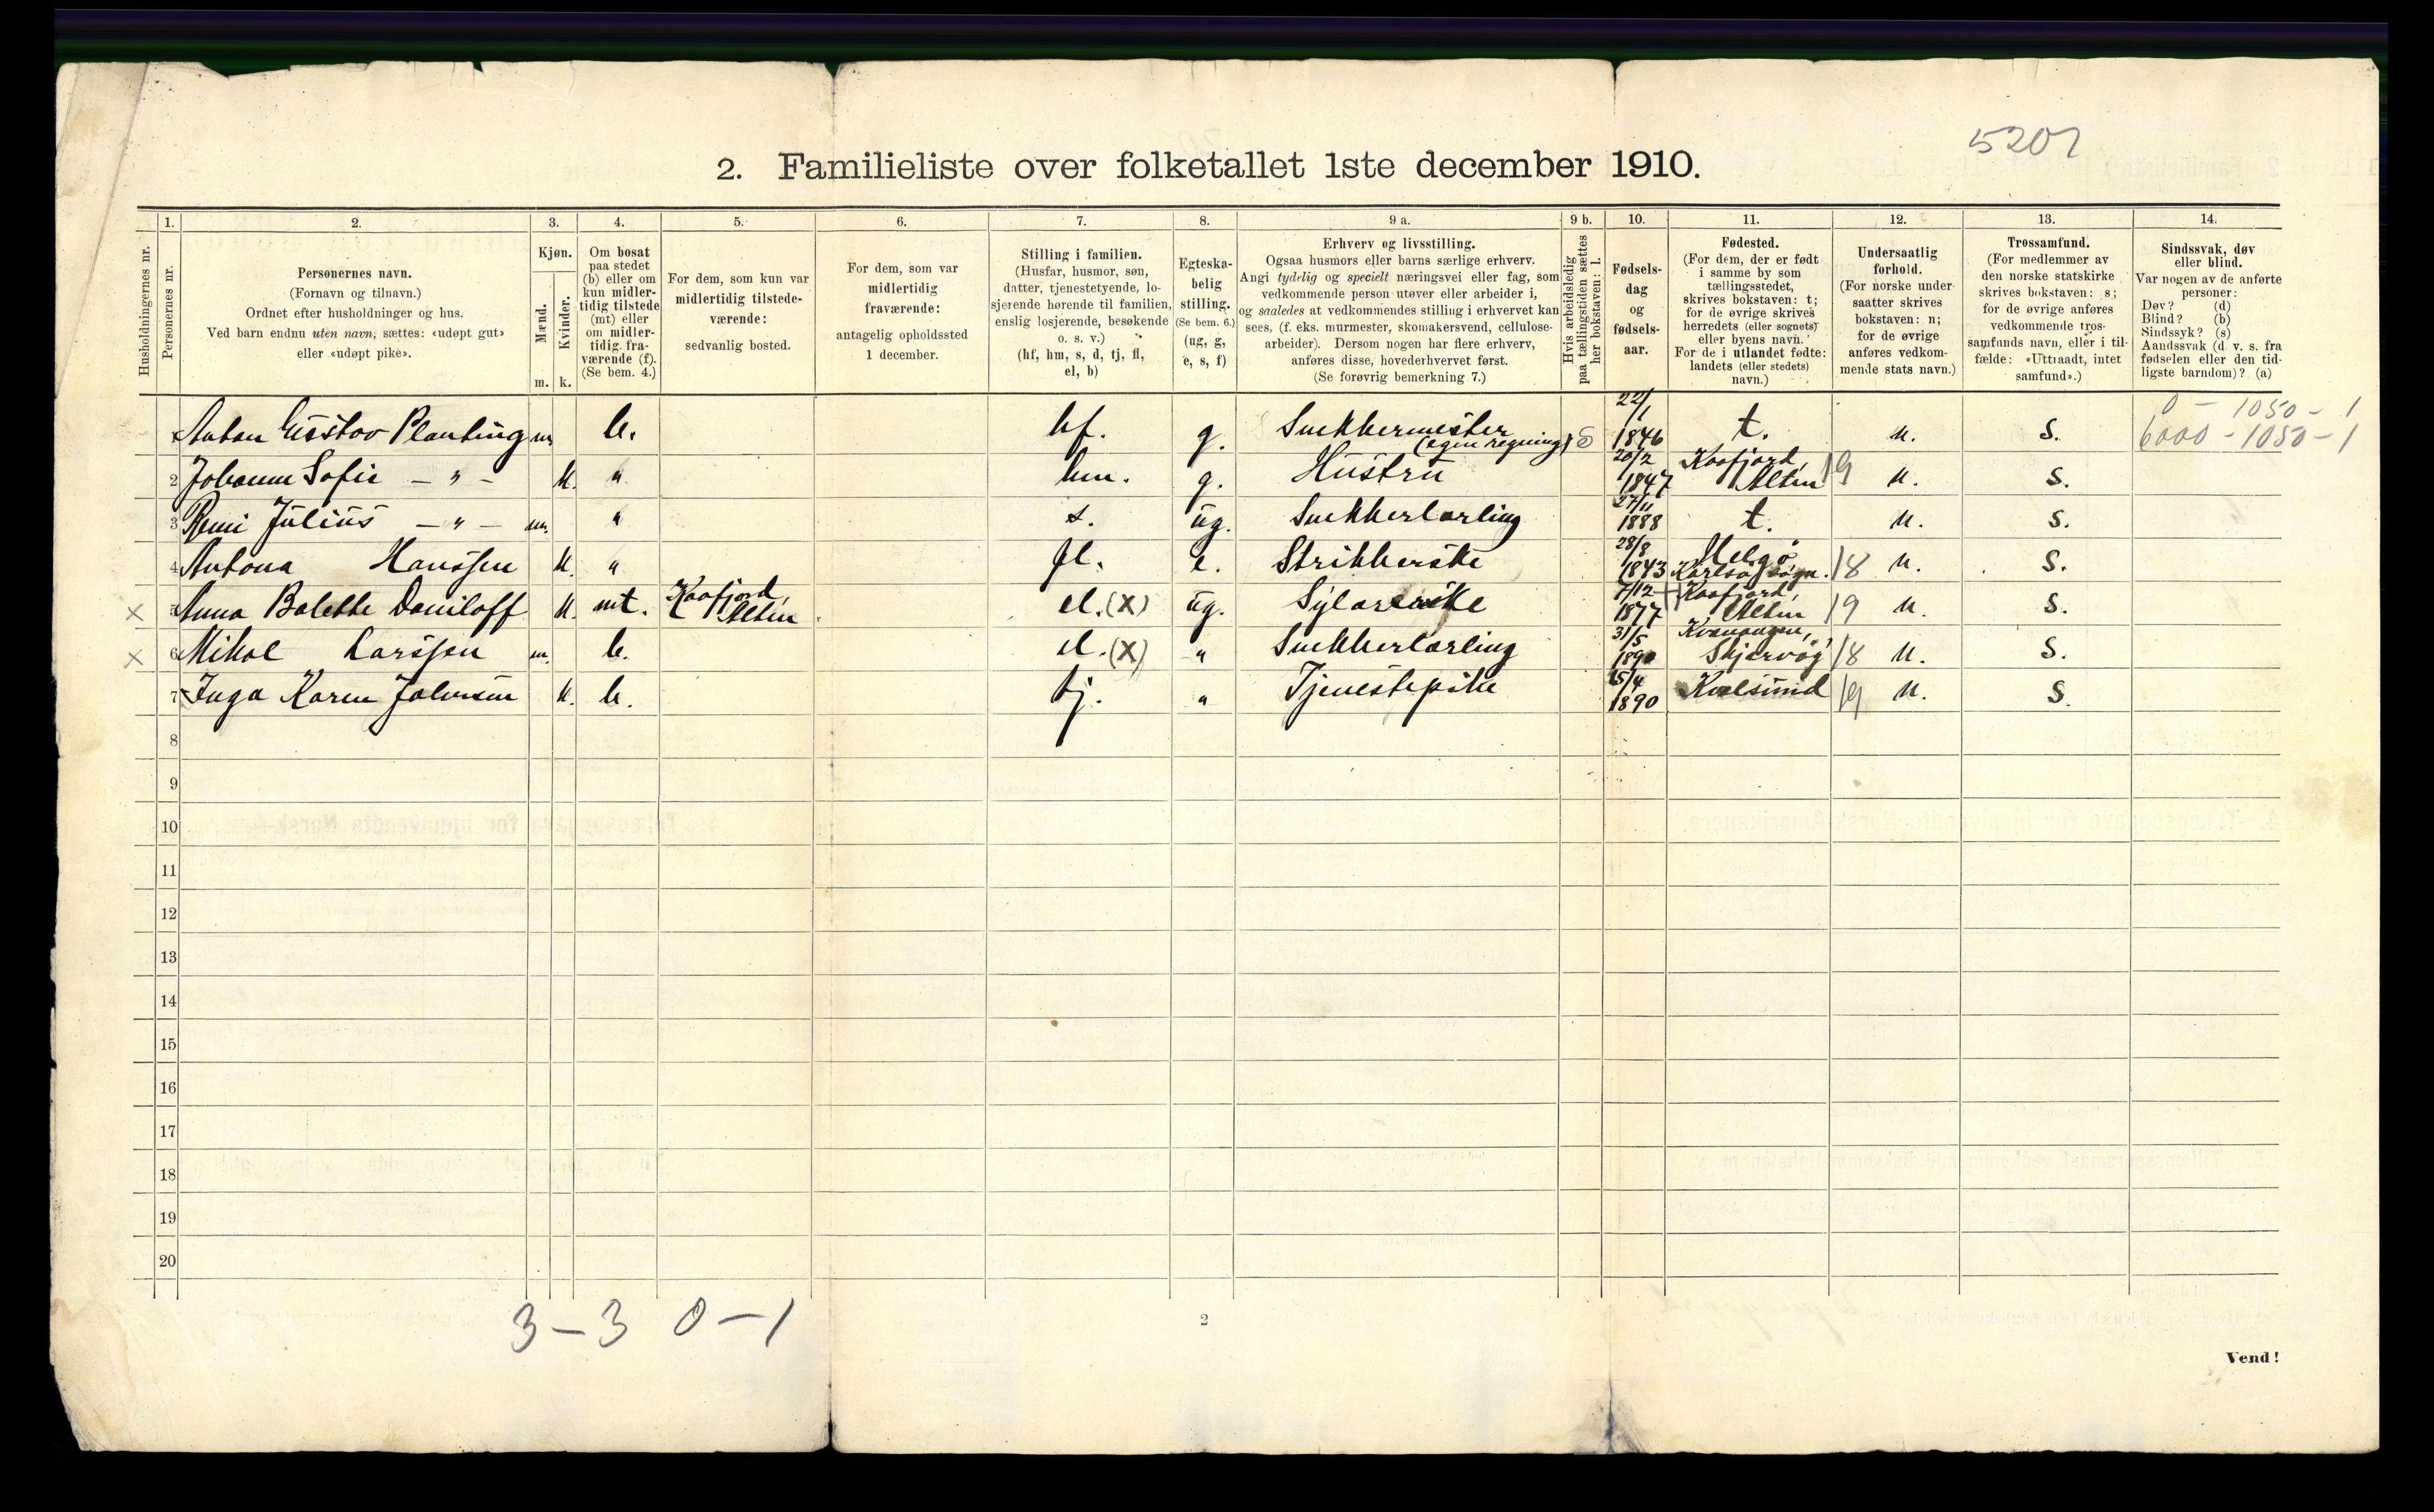 5207
2. Familieliste over folketallet 1ste december 1910.
Husholdningernes nr.
1. Personernes nr.
2. Personernes navn.
(Fornavn og tilnavn.)
Ordnet efter husholdninger og hus.
Ved barn endnu uten navn, sættes: «udøpt gut»
eller «udøpt pike».
3. Kjøn.
Mænd. m.
Kvinder. k.
4. Om bosat
paa stedet
(b) eller om
kun midler-
tidig tilstede
(mt) eller
om midler-
tidig fra-
værende (f).
(Se bem. 4.)
5. For dem, som kun var
midlertidig tilstede-
værende:
sedvanlig bosted.
6. For dem, som var
midlertidig
fraværende:
antagelig opholdssted
1 december.
7. Stilling i familien.
(Husfar, husmor, søn,
datter, tjenestetyende, lo-
sjerende hørende til familien,
enslig losjerende, besøkende
o. s. v.)
(hf, hm, s, d, tj, fl,
el, b)
8. Egteska-
belig
stilling.
(Se bem. 6.)
(ug, g,
e, s, f)
9 a. Erhverv og livsstilling.
Ogsaa husmors eller barns særlige erhverv.
Angi tydelig og specielt næringsvei eller fag, som
vedkommende person utøver eller arbeider i,
og saaledes at vedkommendes stilling i erhvervet kan
sees, (f. eks. murmester, skomakersvend, cellulose-
arbeider). Dersom nogen har flere erhverv,
anføres disse, hovederhvervet først.
(Se forøvrig bemerkning 7.)
9 b. Hvis arbeidsledig
paa tællingstiden sættes
her bokstaven: l.
10. Fødsels-
dag
og
fødsels-
aar.
11. Fødested.
(For dem, der er født
i samme by som
tællingsstedet,
skrives bokstaven: t;
for de øvrige skrives
herredets (eller sognets)
eller byens navn.
For de i utlandet fødte:
landets (eller stedets)
navn.)
12. Undersaatlig
forhold.
(For norske under-
saatter skrives
bokstaven: n;
for de øvrige
anføres vedkom-
mende stats navn.)
13. Trossamfund.
(For medlemmer av
den norske statskirke
skrives bokstaven: s;
for de øvrige anføres
vedkommende tros-
samfunds navn, eller i til-
fælde: «Uttraadt, intet
samfund».)
14. Sindssvak, døv
eller blind.
Var nogen av de anførte
personer:
Døv? (d)
Blind? (b)
Sindssyk? (s)
Aandssvak (d. v. s. fra
fødselen eller den tid-
ligste barndom)? (a)
0 - 1050 - 1
Anton Gustav Planting m. b. hf. g. Snekkermester (egen regning) 22/1 1846 t. n. s. 6000 - 1050 - 1
2 Johanna Sofie - " - k. " hm. g. Hustru 20/2 1847 Kaafjord, Alten 19 n. s.
3 Remi Julius - " - m. " s. ug. Snekkerlærling 27/11 1888 t. n. s.
4 Antona Hanssen k. " fl. e. Strikkerske 28/8 1843 Helgø Karlsø sogn. 18 n. s.
× Anna Balette Daniloff k. mt. Kaafjord, Alten el. (X) ug. Sylærerske 7/12 1877 Kaafjord, Alten 19 n. s.
× 6 Mikal Larssen m. b. el. (X) " Snekkerlærling 31/5 1890 Kvænangen, Skjervøy 18 n. s.
7 Inga Karen Johnsen k. b. tj. " Tjenestepike 15/4 1890 Kvalsund 19 n. s.
8
9
10
11
12
13
14
15
16
17
18
19
20
3 - 3 0 - 1
2
Vend!